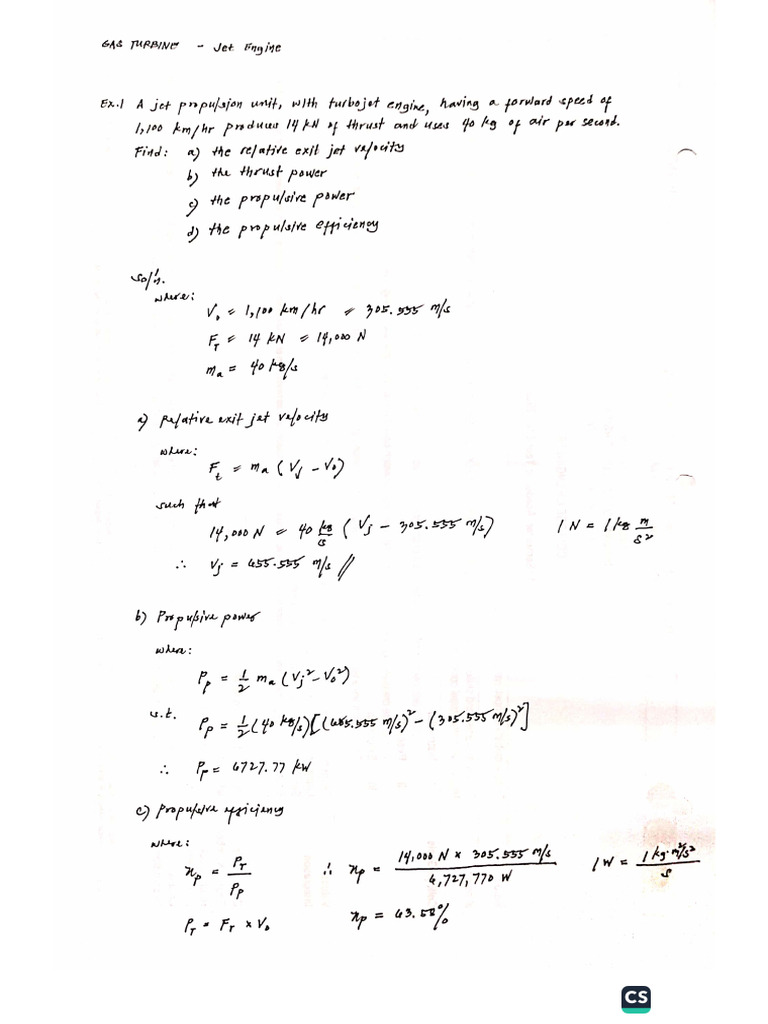 GAS TURBINE - Jet Engine
Ex.1 A jet propulsion unit, with turbojet engine, having a forward speed of
1,100 km/hr produces 14 kN of thrust and uses 40 kg of air per second.
Find: a) the relative exit jet velocity
b) the thrust power
c) the propulsive power
d) the propulsive efficiency
Sol'n.
where:
V₀ = 1,100 km/hr = 305.555 m/s
F_T = 14 kN = 14,000 N
m_a = 40 kg/s
a) Relative exit jet velocity
where:
F_t = m_a (V_j - V₀)
such that
14,000 N = 40 kg/s (V_j - 305.555 m/s) 1 N = 1 kg m/s²
∴ V_j = 655.555 m/s //
b) Propulsive power
where:
P_p = 1/2 m_a (V_j² - V₀²)
s.t. P_p = 1/2 (40 kg/s) [(655.555 m/s)² - (305.555 m/s)²]
∴ P_p = 6727.77 kW
c) Propulsive efficiency
where:
η_p = P_T / P_p ∴ η_p = 14,000 N × 305.555 m/s / 6,727,770 W 1 W = 1 kg·m²/s² / s
P_T = F_T × V₀ η_p = 63.58%
CS